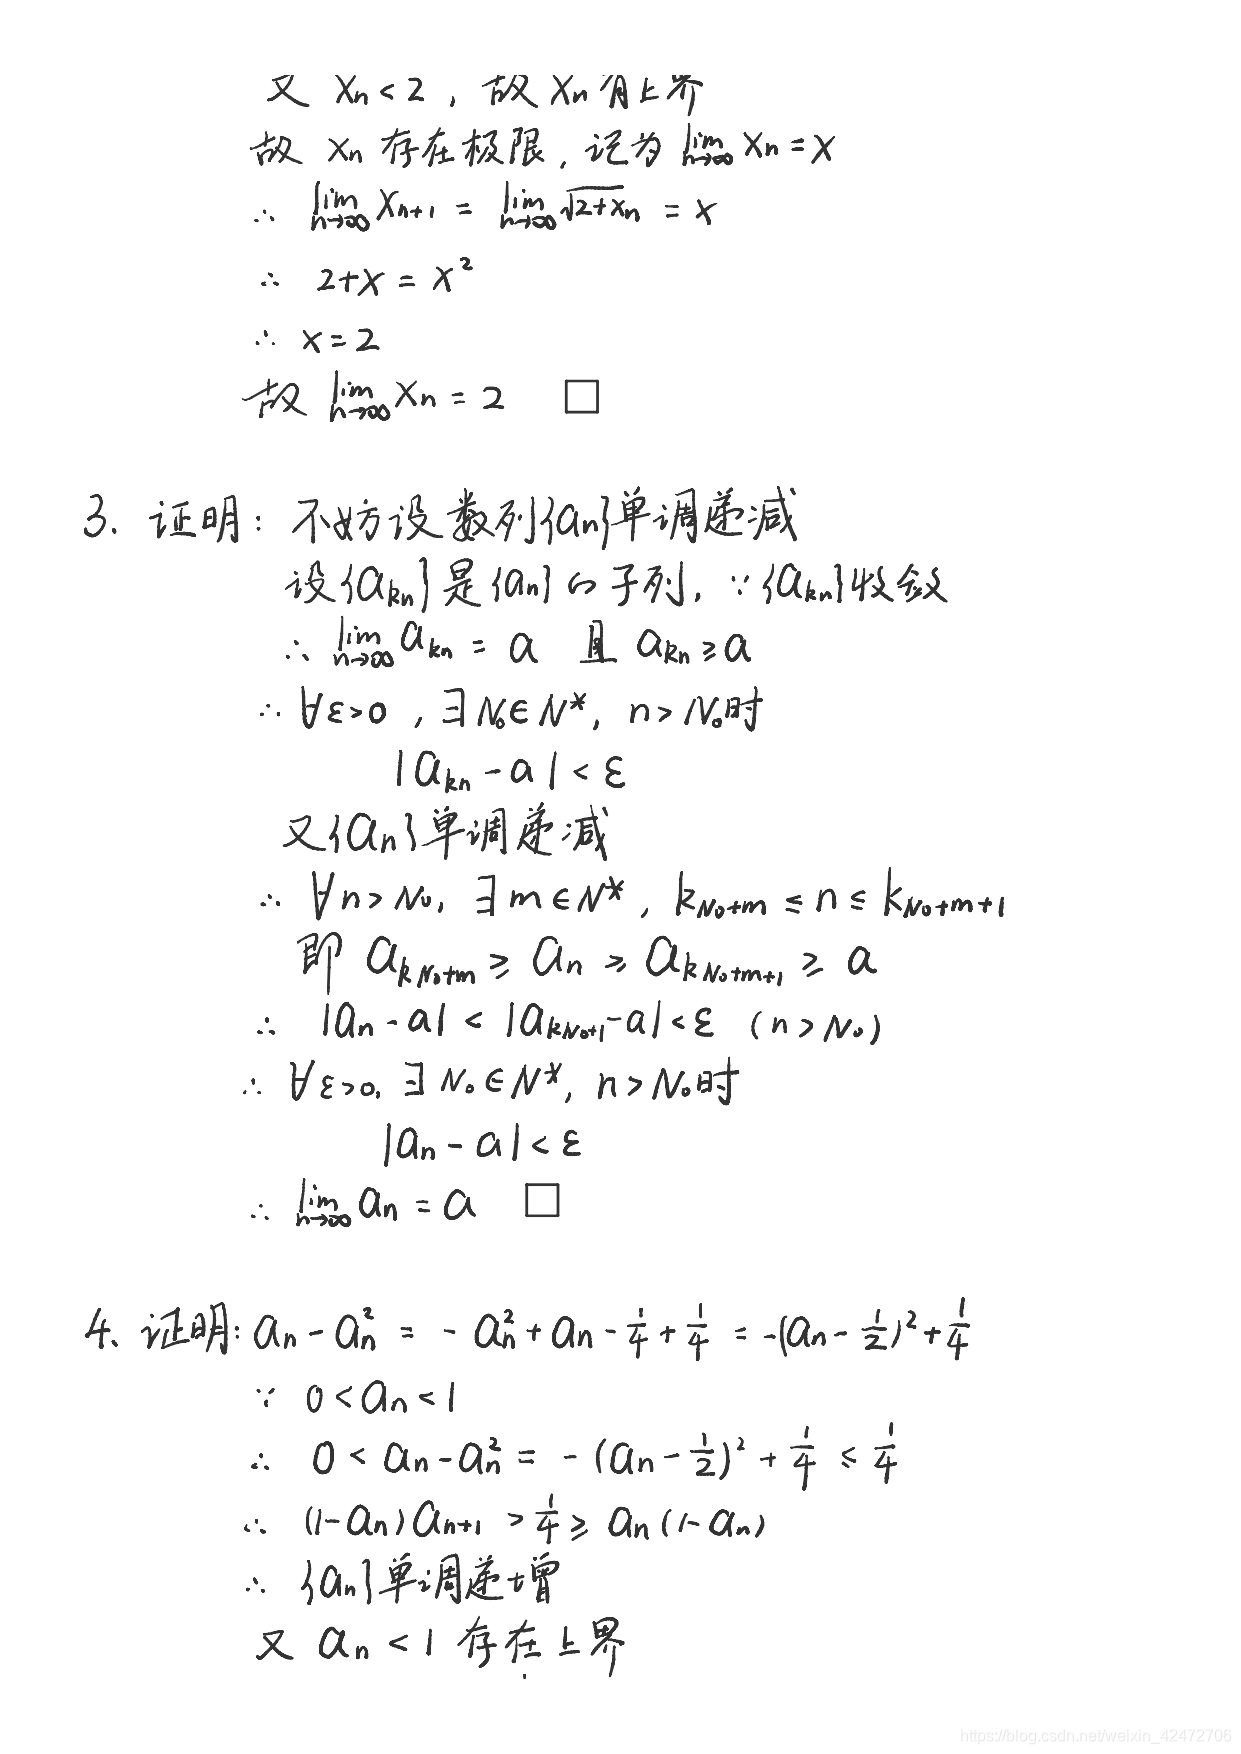 又 xₙ < 2 , 故 xₙ 有上界
故 xₙ 存在极限, 记为 lim_{n→∞} xₙ = x
∴ lim_{n→∞} xₙ₊₁ = lim_{n→∞} √(2+xₙ) = x
∴ 2+x = x²
∴ x = 2
故 lim_{n→∞} xₙ = 2 □
3. 证明: 不妨设数列{aₙ}单调递减
设{a_{kₙ}}是{aₙ}的子列, ∵{a_{kₙ}}收敛
∴ lim_{n→∞} a_{kₙ} = a 且 a_{kₙ} ≥ a
∴ ∀ε>0 , ∃N₀∈N*, n>N₀时
|a_{kₙ} - a| < ε
又{aₙ}单调递减
∴ ∀n>N₀, ∃m∈N*, k_{N₀+m} ≤ n ≤ k_{N₀+m+1}
即 a_{k_{N₀+m}} ≥ aₙ ≥ a_{k_{N₀+m+1}} ≥ a
∴ |aₙ - a| < |a_{k_{N₀+1}} - a| < ε (n>N₀)
∴ ∀ε>0, ∃N₀∈N*, n>N₀时
|aₙ - a| < ε
∴ lim_{n→∞} aₙ = a □
4. 证明: aₙ - aₙ² = - aₙ² + aₙ - 1/4 + 1/4 = -(aₙ - 1/2)² + 1/4
∵ 0 < aₙ < 1
∴ 0 < aₙ - aₙ² = - (aₙ - 1/2)² + 1/4 ≤ 1/4
∴ (1-aₙ)aₙ₊₁ > 1/4 ≥ aₙ(1-aₙ)
∴ {aₙ}单调递增
又 aₙ < 1 存在上界
https://blog.csdn.net/weixin_42472706